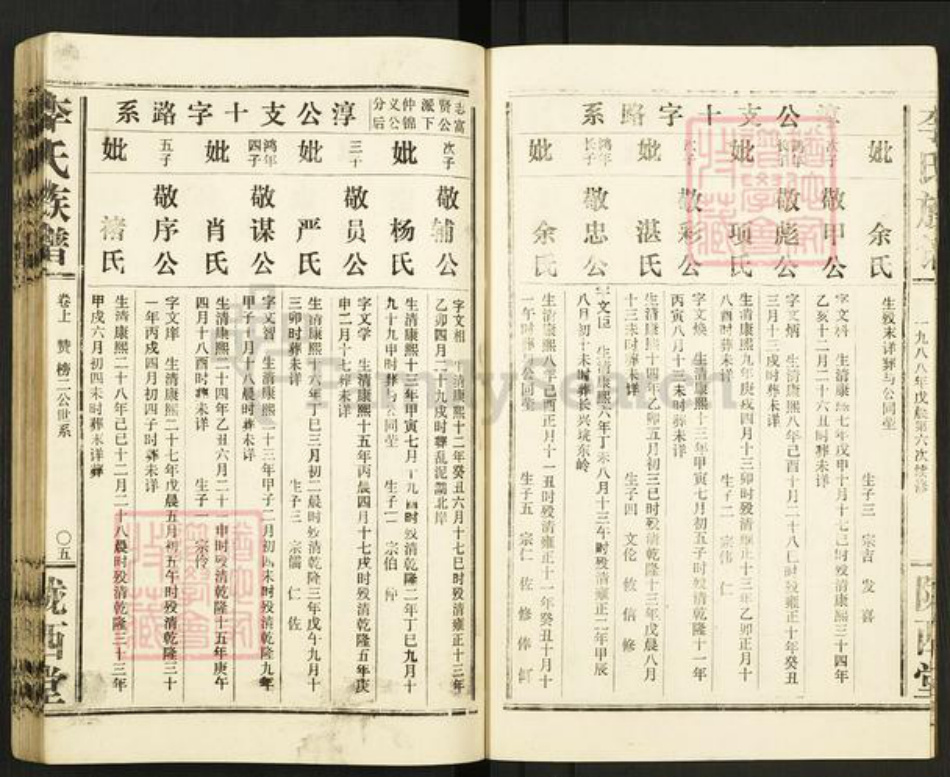 李氏族谱
一九八八年戊晨第六次续修
陇西堂
淳公支十字路系
妣 余氏
生殁未详葬与公同茔
生子三 宗吉 发 喜
次子 敬甲公
乙亥十二月二十六丑时葬未详
妣 项氏
八酉时葬未详
生子二 宗伟 仁
鸿年长子 敬彪公
字文炳 生清康熙八年己酉十月二十八巳时殁雍正十年癸丑
三月十三戍时葬未详
妣 湛氏
生清康熙十四年乙卯五月初三巳时殁清乾隆十三年戊晨八月
十三未时葬未详
生子四 文伦 攸 信 修
次子 敬彩公
字文焕 生清康熙十三年甲寅七月初五子时殁清乾隆十一年
丙寅八月十三未时葬未详
妣 余氏
生清康熙八年己酉正月十一丑时殁清雍正十一年癸丑十月十
一午时葬与公同茔
生子五 宗仁 佐 修 俸
鸿年长子 敬忠公
字文臣 生清康熙六年丁未八月十三午时殁清雍正二年甲辰
八月初十未时葬长兴垅东岭
志富贤公派下仲锦义公分后
淳公支十字路系
次子 敬辅公
字文相 生清康熙十二年癸丑六月十七巳时殁清雍正十三年
乙卯四月二十九戍时葬乱泥㵎北岸
妣 杨氏
生清康熙十三年甲寅七月十九酉时殁清乾隆二年丁巳九月十
九十九申时葬与公同茔
生子二 宗伯
三子 敬员公
字文学 生清康熙十五年丙晨四月十七戍时殁清乾隆五年庚
申二月十七葬未详
妣 严氏
生清康熙十六年丁巳三月初二晨时殁清乾隆三年戊午九月十
三卯时葬未详
生子三 宗儒 仁 佐
鸿年四子 敬谋公
字文智 生清康熙二十三年甲子二月初四未时殁清乾隆九年
甲子十月十八晨时葬未详
妣 肖氏
生清康熙二十四年乙丑六月二十一申时殁清乾隆十五年庚午
四月十八酉时葬未详
生子一 宗伶
五子 敬序公
字文庠 生清康熙二十七年戊晨五月初五午时殁清乾隆三十
一年丙戍四月初四子时葬未详
妣 褚氏
生清康熙二十八年己巳十二月二十八晨时殁清乾隆三十三年
甲戍六月初四未时葬未详葬
李氏族谱
卷上 赞榜二公世系
〇五
陇西堂